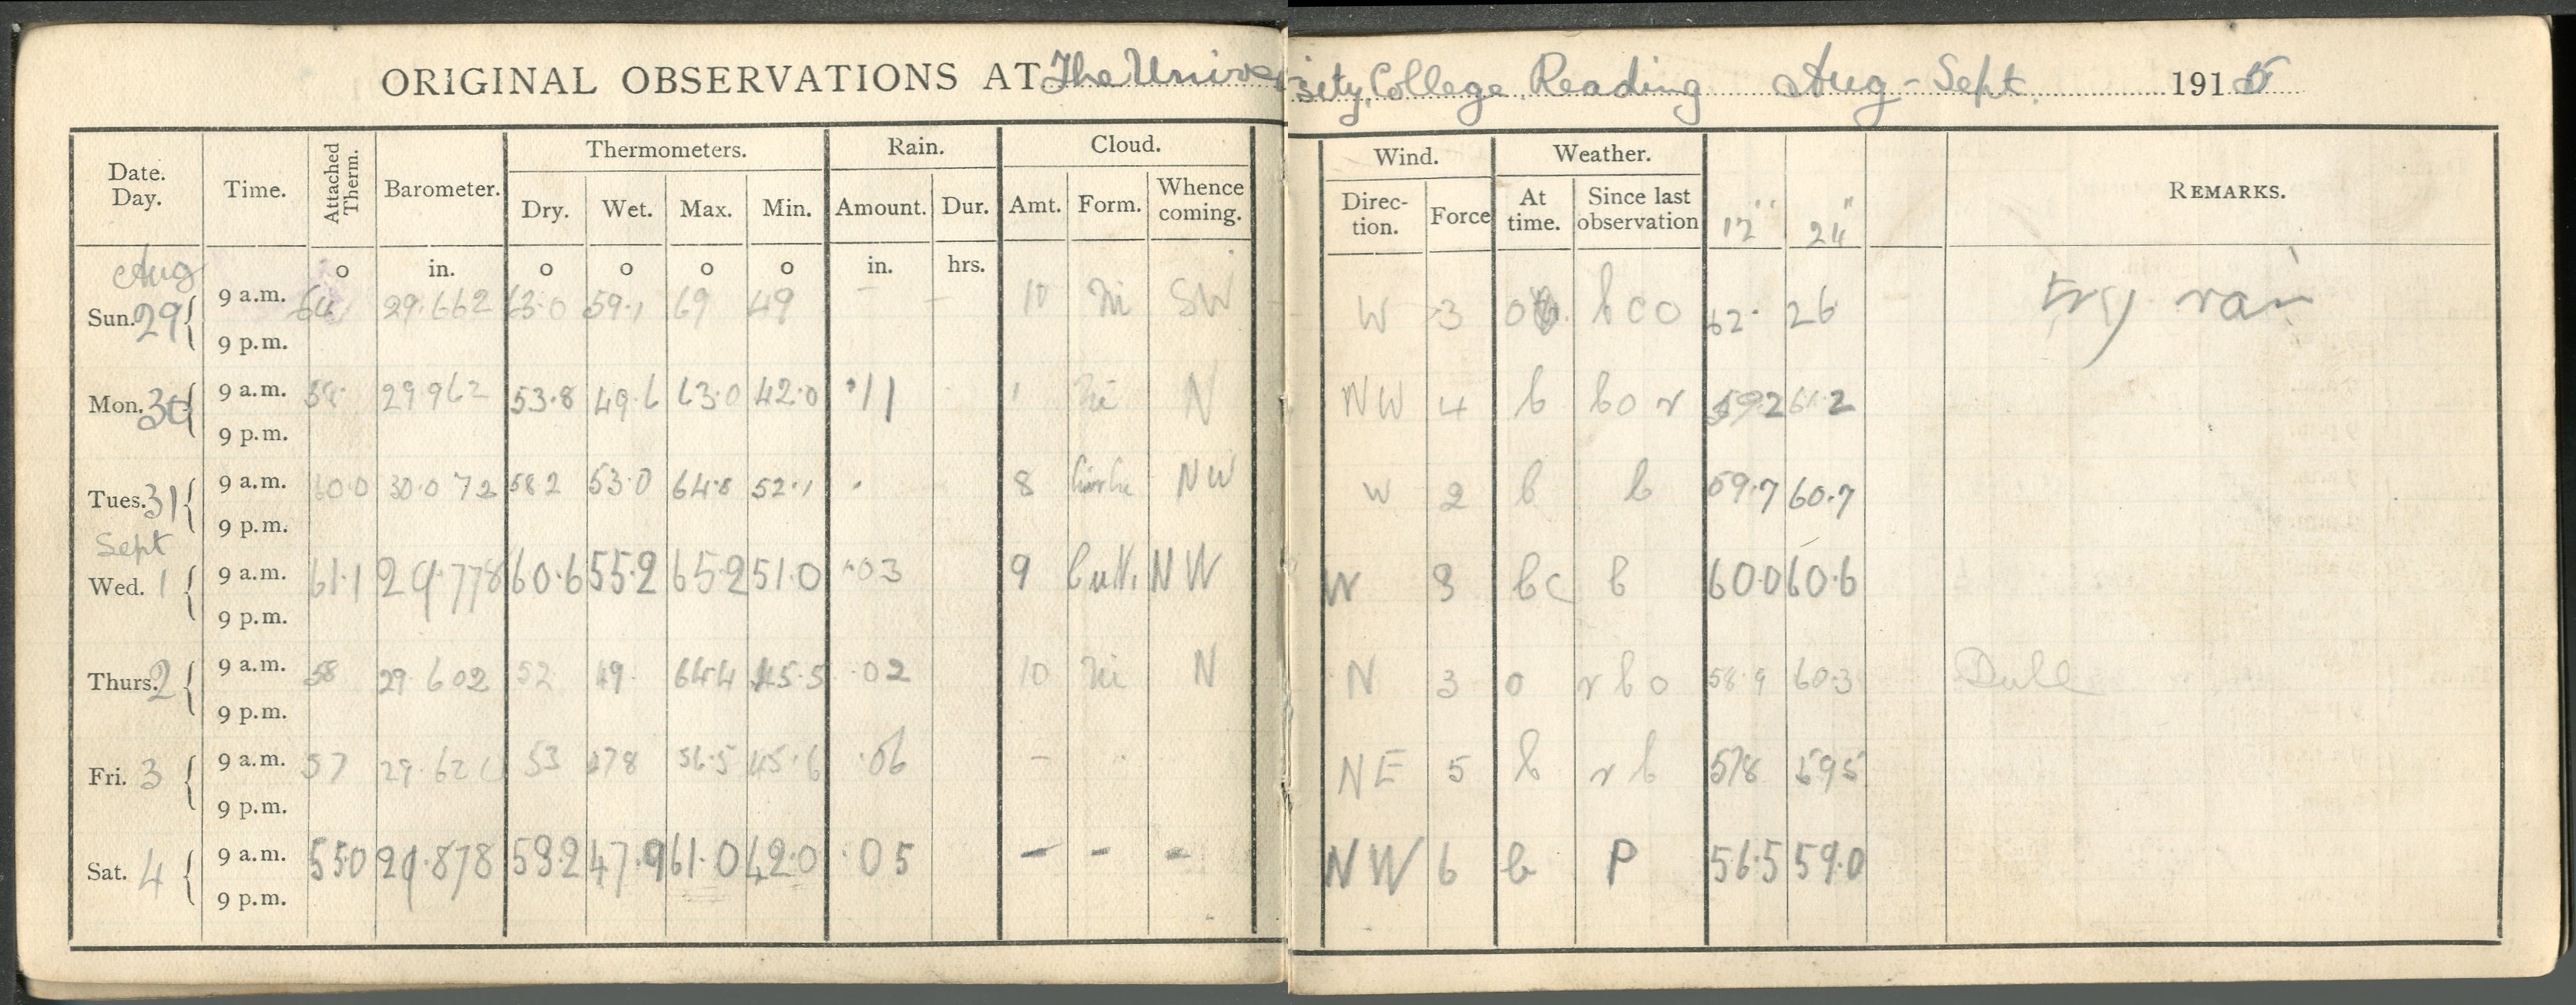 ORIGINAL OBSERVATIONS AT The University College Reading Aug - Sept. 1915
Thermometers. Rain. Cloud. Wind. Weather.
Date. Day. Time. Attached Therm. Barometer. Dry. Wet. Max. Min. Amount. Dur. Amt. Form. Whence coming. Direc- tion. Force At time. Since last observation 12" 24" REMARKS.
Aug o in. o o o o in. hrs.
Sun. 29 9 a.m. 64 29.662 63.0 59.1 69 49 - - 10 Ni SW W 3 o b c o 62. 26 try rain
9 p.m.
Mon. 30 9 a.m. 29962 53.8 49.6 63.0 42.0 .11 1 Ni N NW 4 b b o r 59.2 61.2
9 p.m.
Tues. 31 9 a.m. 60.0 30.072 58.2 53.0 64.8 52.1 . 8 NW W 2 b b 59.7 60.7
9 p.m.
Sept
Wed. 1 9 a.m. 61.1 29.778 60.6 55.2 65.2 51.0 .03 9 NW W 3 bc b 60.0 60.6
9 p.m.
Thurs. 2 9 a.m. 58 29.602 52 49. 64.4 45.5 .02 10 Ni N N 3 o r b o 58.9 60.3 Dull
9 p.m.
Fri. 3 9 a.m. 57 53 478 56.5 45.6 .06 - NE 5 b r b 578 595
9 p.m.
Sat. 4 9 a.m. 55.0 29.878 53.2 47.9 61.0 42.0 .05 - - - NW 6 b P 56.5 59.0
9 p.m.